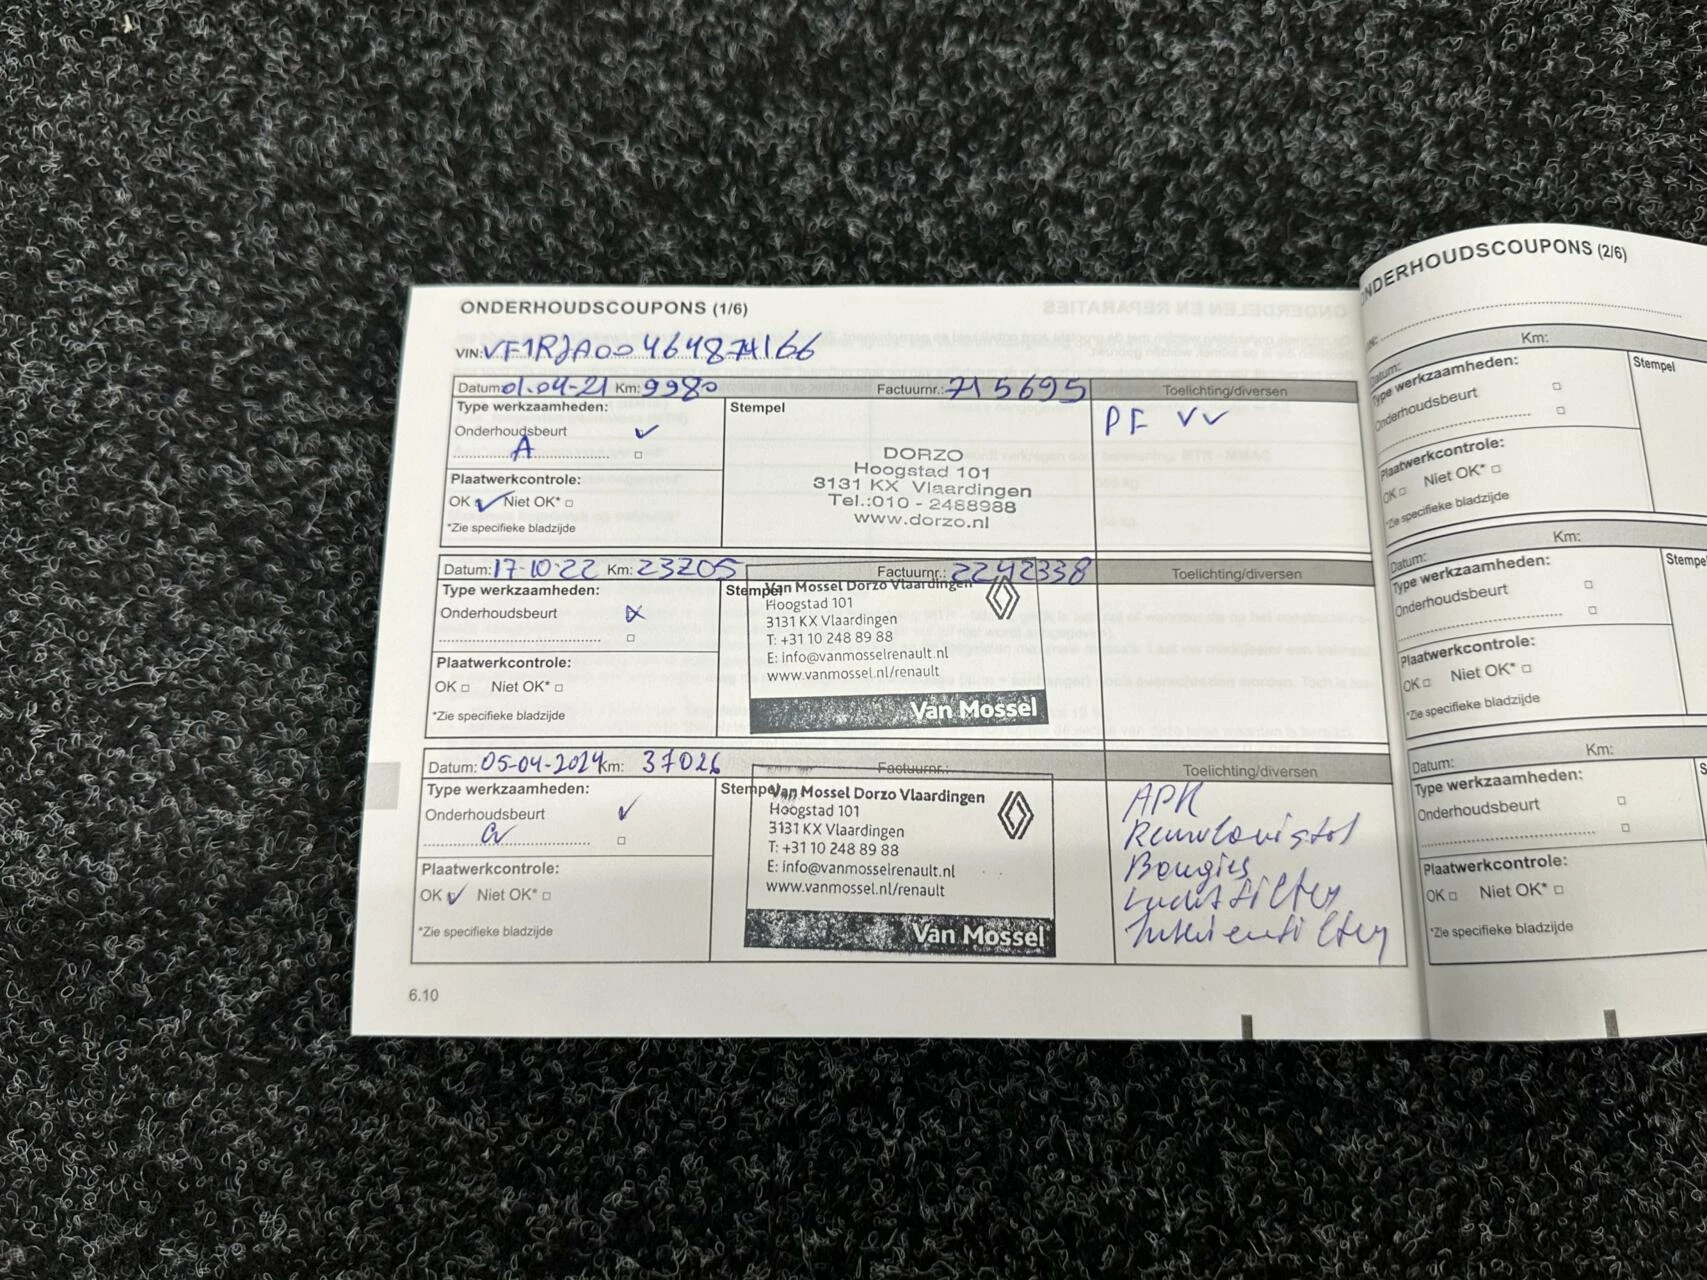 ONDERHOUDSCOUPONS (1/6)
VIN: VF1RJA00464874166
Datum: 01.04-21 Km: 9980 Factuurnr.: 715695 Toelichting/diversen
Type werkzaamheden: Stempel
Onderhoudsbeurt
A
Plaatwerkcontrole:
OK Niet OK*
*Zie specifieke bladzijde
DORZO
Hoogstad 101
3131 KX Vlaardingen
Tel.:010 - 2488988
www.dorzo.nl
PF VV
Datum: 17-10-22 Km: 23205 Factuurnr.: 2242338 Toelichting/diversen
Type werkzaamheden: Stempel
Onderhoudsbeurt
Plaatwerkcontrole:
OK Niet OK*
*Zie specifieke bladzijde
Van Mossel Dorzo Vlaardingen
Hoogstad 101
3131 KX Vlaardingen
T: +31 10 248 89 88
E: info@vanmosselrenault.nl
www.vanmossel.nl/renault
Van Mossel
Datum: 05-04-2024 Km: 37026 Factuurnr.: Toelichting/diversen
Type werkzaamheden: Stempel
Onderhoudsbeurt
Plaatwerkcontrole:
OK Niet OK*
*Zie specifieke bladzijde
Van Mossel Dorzo Vlaardingen
Hoogstad 101
3131 KX Vlaardingen
T: +31 10 248 89 88
E: info@vanmosselrenault.nl
www.vanmossel.nl/renault
Van Mossel
APK
Remvloeistof
Bougies
Luchtfilter
Interieurfilter
6.10
ONDERHOUDSCOUPONS (2/6)
Km:
Datum:
Type werkzaamheden: Stempel
Onderhoudsbeurt
Plaatwerkcontrole:
OK Niet OK*
*Zie specifieke bladzijde
Datum: Km:
Type werkzaamheden:
Onderhoudsbeurt
Plaatwerkcontrole:
OK Niet OK*
*Zie specifieke bladzijde
Datum: Km:
Type werkzaamheden:
Onderhoudsbeurt
Plaatwerkcontrole:
OK Niet OK*
*Zie specifieke bladzijde